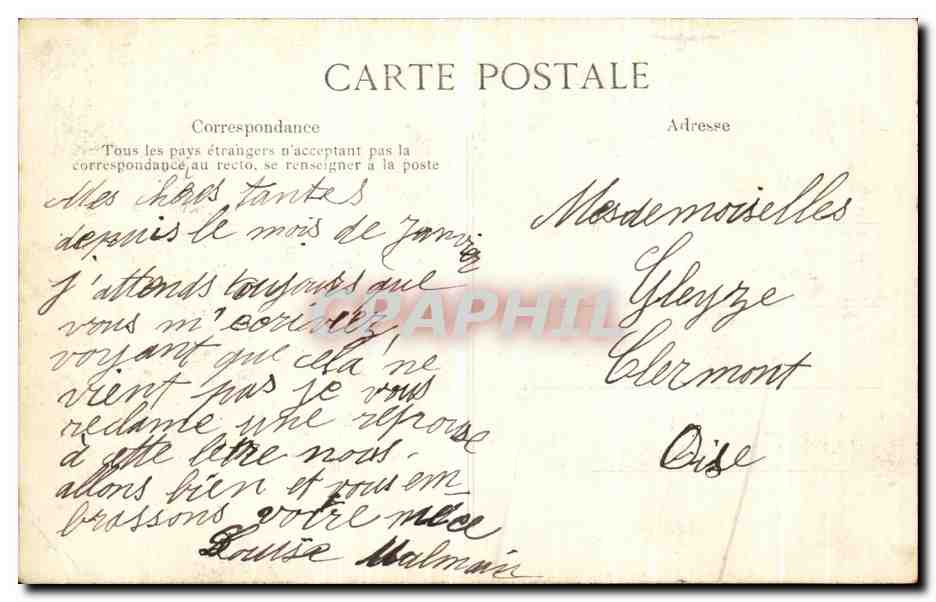 CARTE POSTALE
Correspondance
Tous les pays étrangers n'acceptant pas la
correspondance au recto, se renseigner à la poste
Mes chères tantes
depuis le mois de Janvier
j'attends toujours que
vous m'écriviez
voyant que cela ne
vient pas je vous
réclame une réponse
à cette lettre nous
allons bien et vous em-
brassons votre nièce
Louise Malmain
Adresse
Mesdemoiselles
Gleyze
Clermont
Oise
CPAPHIL